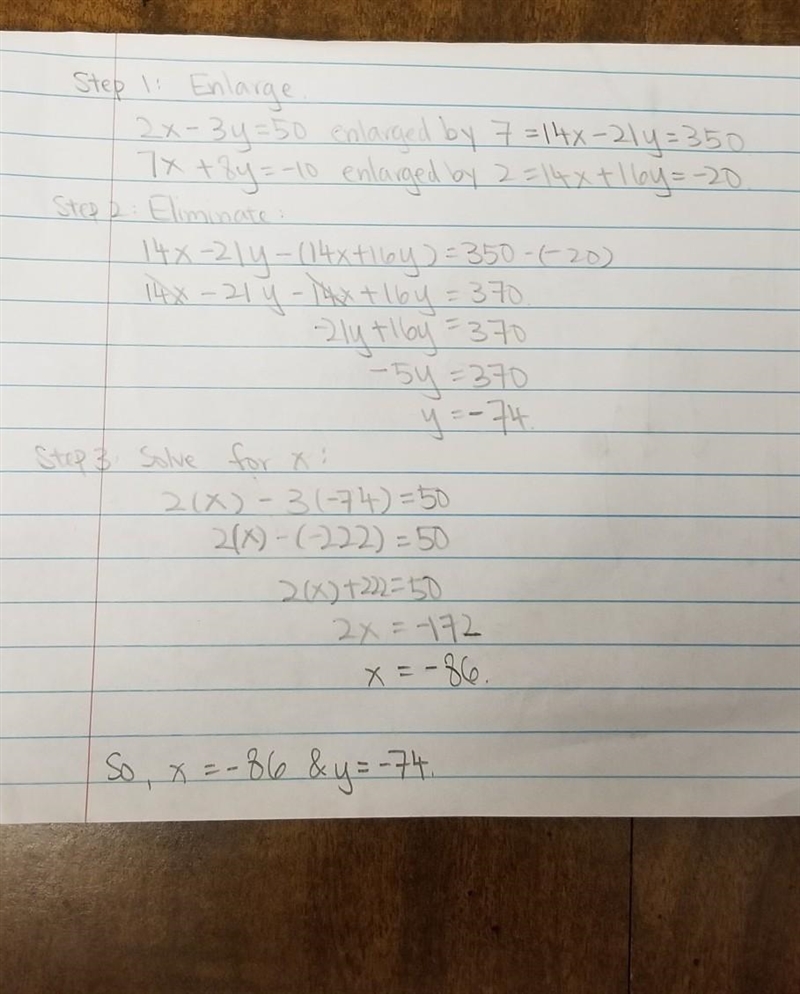 Step 1: Enlarge.
2x-3y=50 enlarged by 7=14x-21y=350
7x+8y=-10 enlarged by 2=14x+16y=-20
Step 2: Eliminate:
14x-21y-(14x+16y)=350-(-20)
14x-21y-14x+16y=370
-21y+16y=370
-5y=370
y=-74.
Step 3: Solve for x:
2(x)-3(-74)=50
2(x)-(-222)=50
2(x)+222=50
2x=-172
x=-86.
So, x=-86 & y=-74.